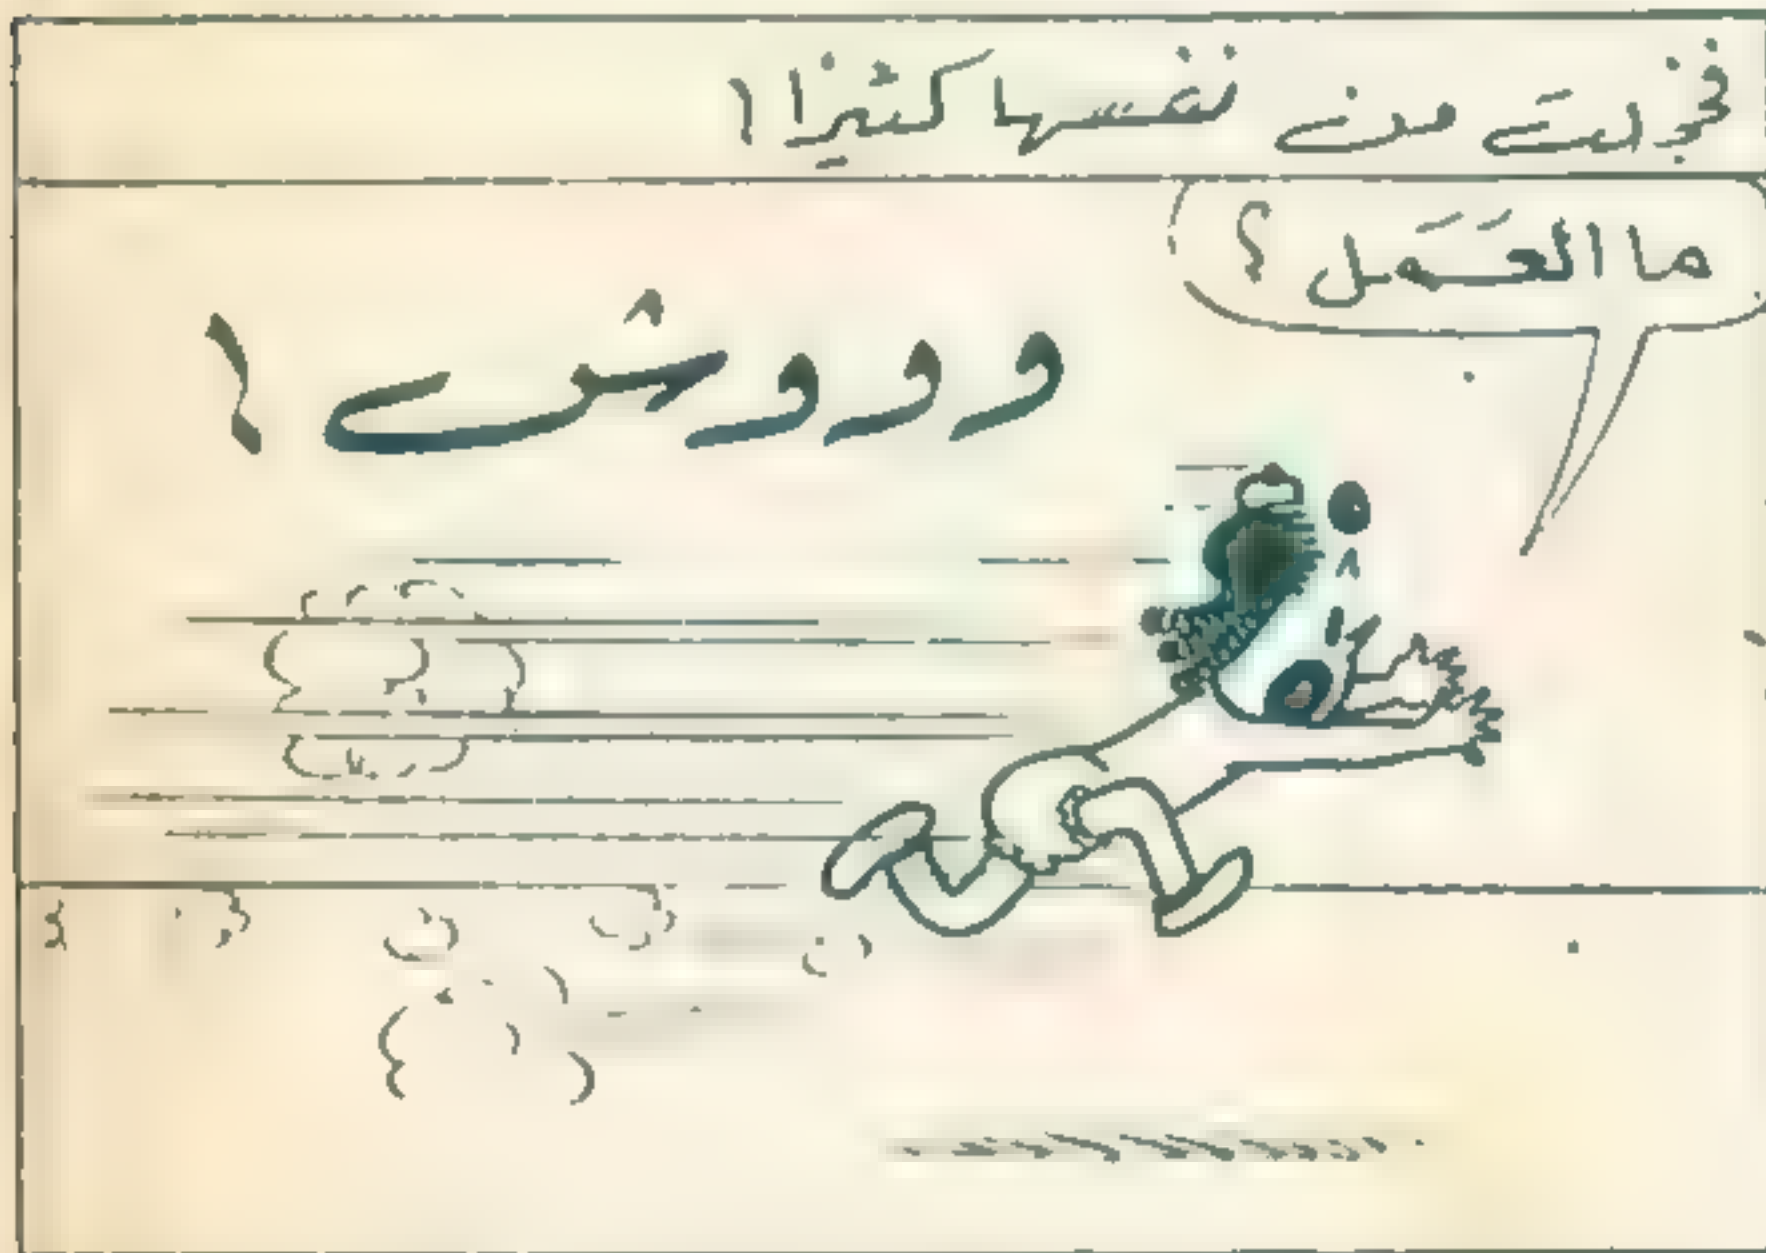 فخجلت من نفسها كثيرًا!
ما العَمَل؟
وووش!